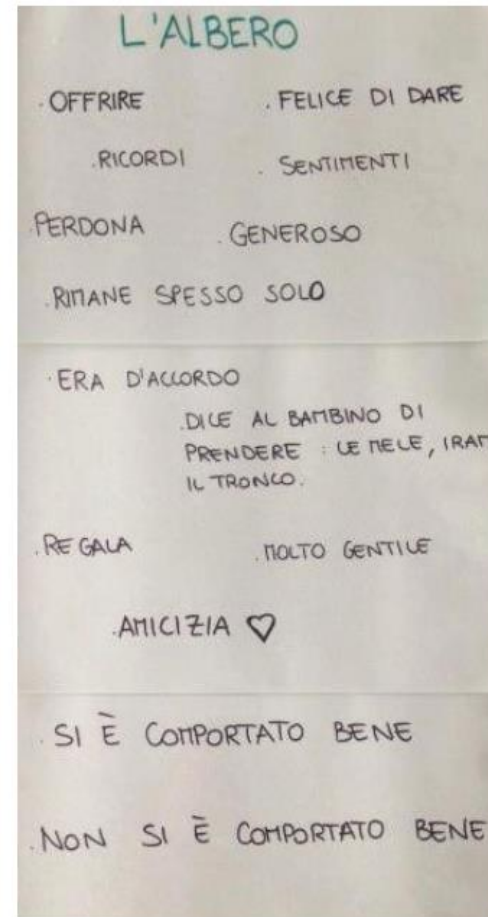 L'ALBERO
. OFFRIRE . FELICE DI DARE
. RICORDI . SENTIMENTI
. PERDONA . GENEROSO
. RIMANE SPESSO SOLO
. ERA D'ACCORDO
. DICE AL BAMBINO DI
PRENDERE : LE MELE, I RAM
IL TRONCO.
. REGALA . MOLTO GENTILE
. AMICIZIA ♡
. SI È COMPORTATO BENE
. NON SI È COMPORTATO BENE